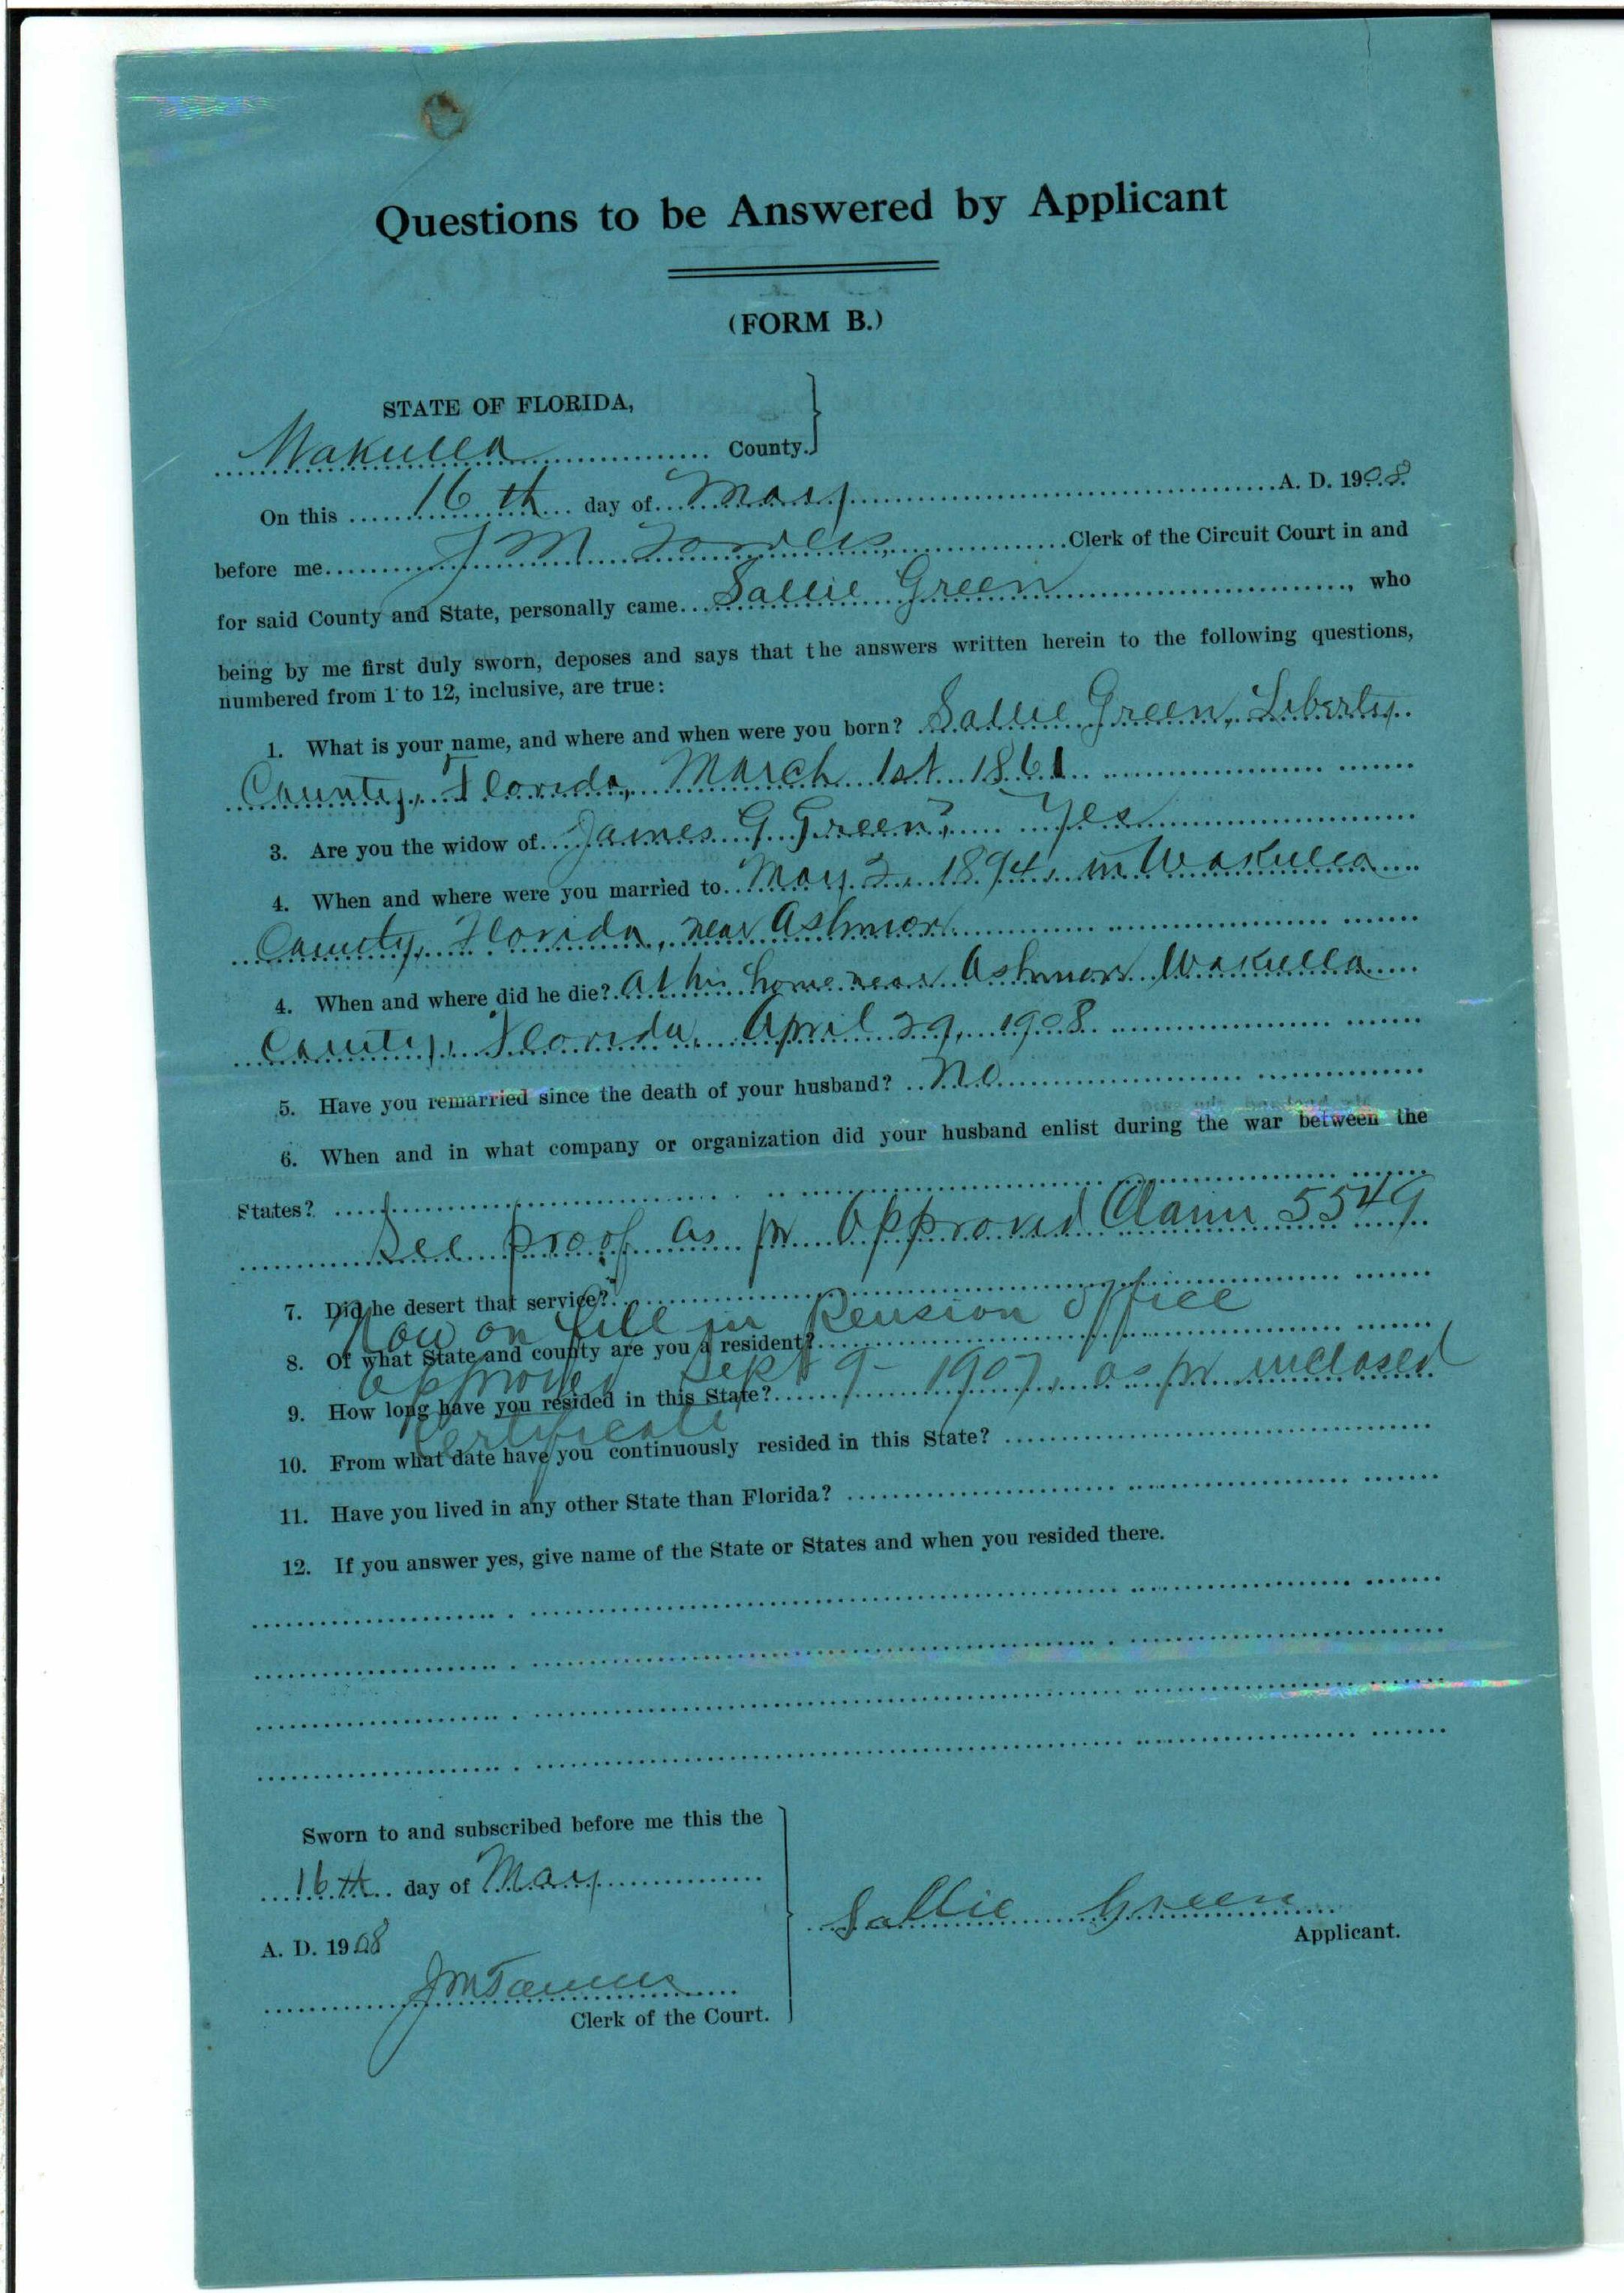 Questions to be Answered by Applicant
(FORM B.)
STATE OF FLORIDA,
Wakulla County.
On this 16th day of May A. D. 1908
before me J M Towles, Clerk of the Circuit Court in and
for said County and State, personally came Sallie Green, who
being by me first duly sworn, deposes and says that the answers written herein to the following questions,
numbered from 1 to 12, inclusive, are true:
1. What is your name, and where and when were you born? Sallie Green, Liberty
County, Florida, March 1st 1861
3. Are you the widow of James G Green? Yes
4. When and where were you married to May 2, 1894, in Wakulla
County, Florida, near Ashmore
4. When and where did he die? At his home near Ashmore Wakulla
County, Florida, April 29, 1908
5. Have you remarried since the death of your husband? No
6. When and in what company or organization did your husband enlist during the war between the
States?
See proof as pr Approved Claim 5549
7. Did he desert that service?
Now on file in Pension office
8. Of what State and county are you a resident?
approved Sept 9 - 1907, as pr inclosed
9. How long have you resided in this State?
Certificate
10. From what date have you continuously resided in this State?
11. Have you lived in any other State than Florida?
12. If you answer yes, give name of the State or States and when you resided there.
Sworn to and subscribed before me this the
16th day of May
A. D. 1908
Sallie Green
Applicant.
J M Towles
Clerk of the Court.